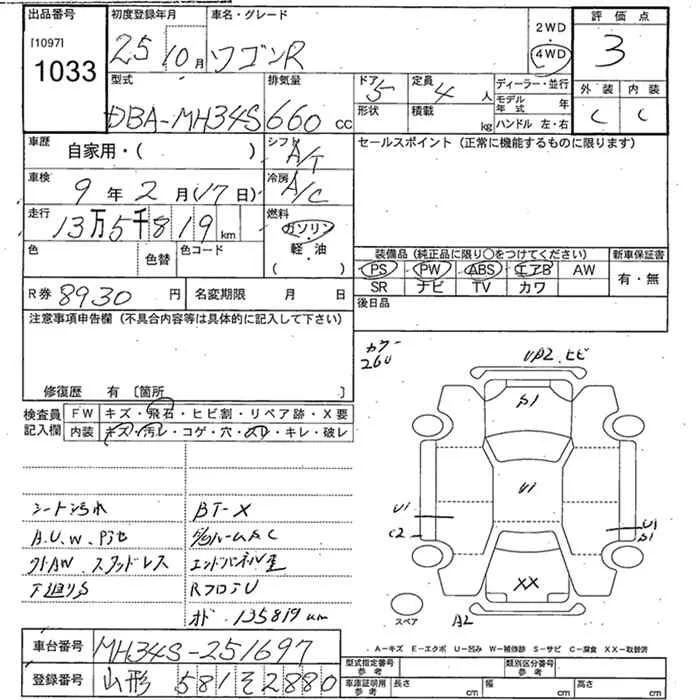 出品番号 初度登録年月 車名・グレード 評価点
[1097] 1033 25 10月 ワゴンR 2WD 4WD 3
型式 排気量 ドア 定員 ディーラー・並行 外装 内装
DBA-MH34S 660cc 5 4人 モデル年式 年 C C
形状 積載 kg ハンドル 左・右
車歴 自家用・( ) シフト A/T セールスポイント(正常に機能するものに限ります)
車検 9年2月(17日) 冷房 A/C
走行 13万5千819km 燃料 ガソリン
色 色替 色コード 軽・油 ( )
装備品(純正品に限り○をつけてください) 新車保証書
PS PW ABS エアB AW 有・無
SR ナビ TV カワ
R券 8930円 名変期限 月 日 後日品
注意事項申告欄(不具合内容等は具体的に記入して下さい)
カラー 260
修復歴 有〔箇所 〕
検査員記入欄 FW キズ・飛石・ヒビ割・リペア跡・X要
内装 キズ・汚レ・コゲ・穴・スレ・キレ・破レ
U P2 ヒビ
A1
U1
U1
C2
U1
XX
スペア
A2
シート汚れ BT-X
A.U.W.
外AW スタッドレス エンドパネル
下廻りS RフロアU
オド 135819km
A-キズ E-エクボ U-凹み W-補修跡 S-サビ C-腐食 XX-取替済
車台番号 MH34S-251697
登録番号 山形 581 そ 2880
型式指定番号 参考 類別区分番号 参考
車庫証明用 参考 長さ cm 幅 cm 高さ cm